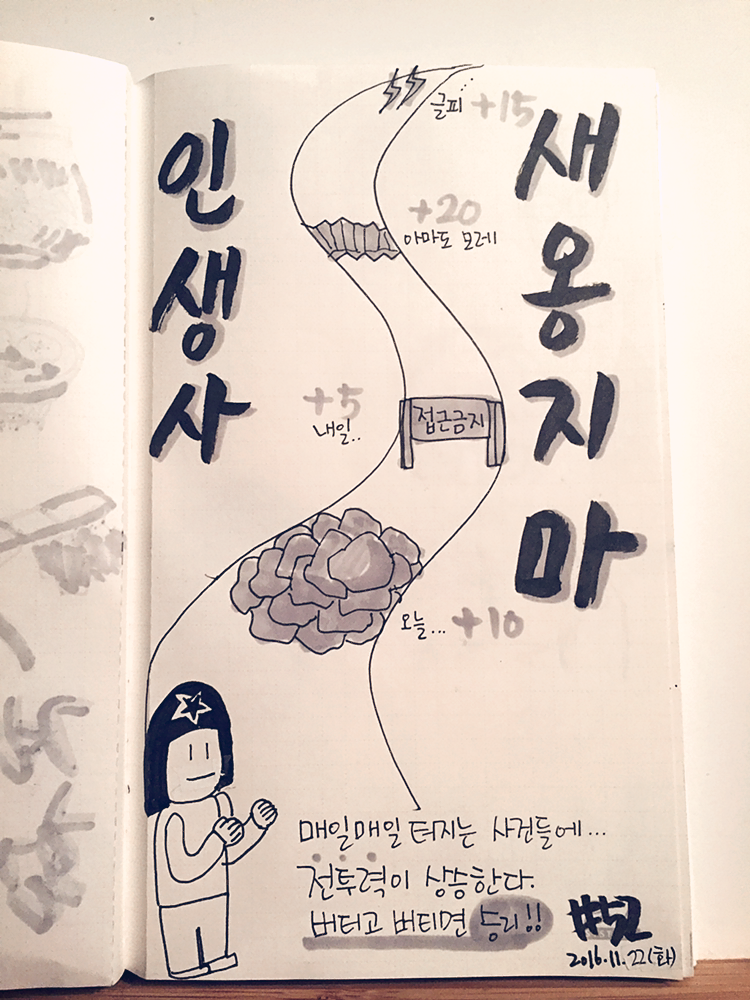 인생사
새옹지마
글피 +15
+20
아마도 모레
+5
내일..
접근금지
오늘... +10
매일매일 터지는 사건들에...
전투력이 상승한다.
버티고 버티면 승리!!
#52
2016.11.22(화)